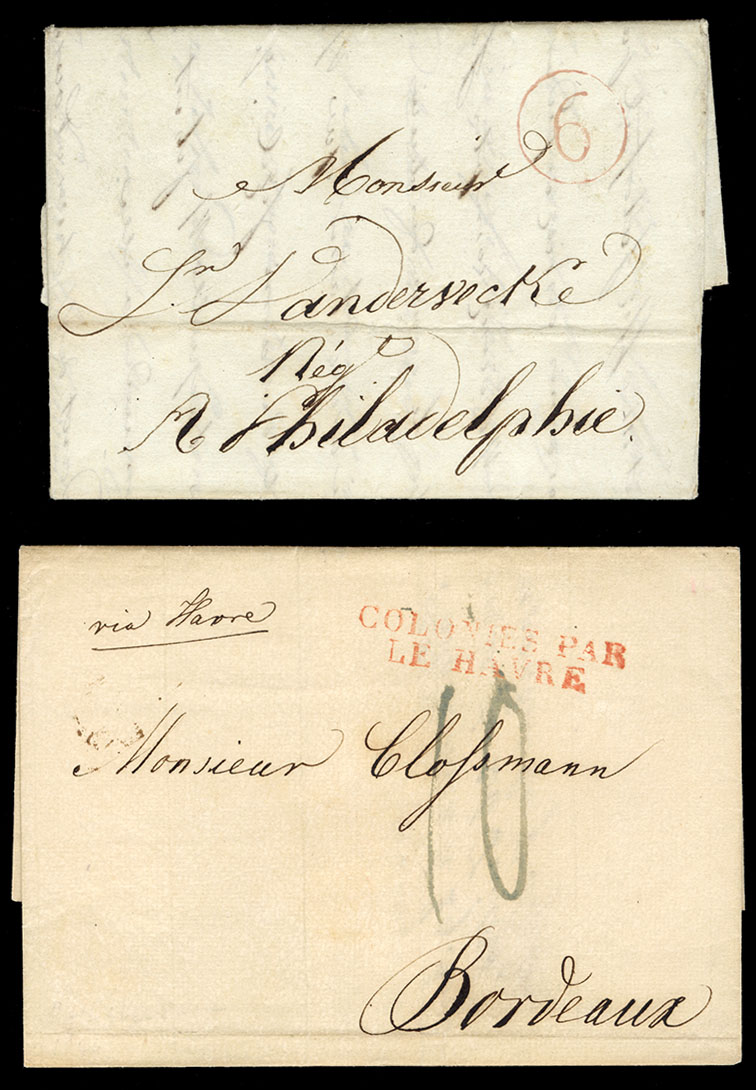 6
Monsieur
Jn. Vandervecke
Négt
A Philadelphie.
via Havre
COLONIES PAR
LE HAVRE
10
Monsieur Clossmann
Bordeaux